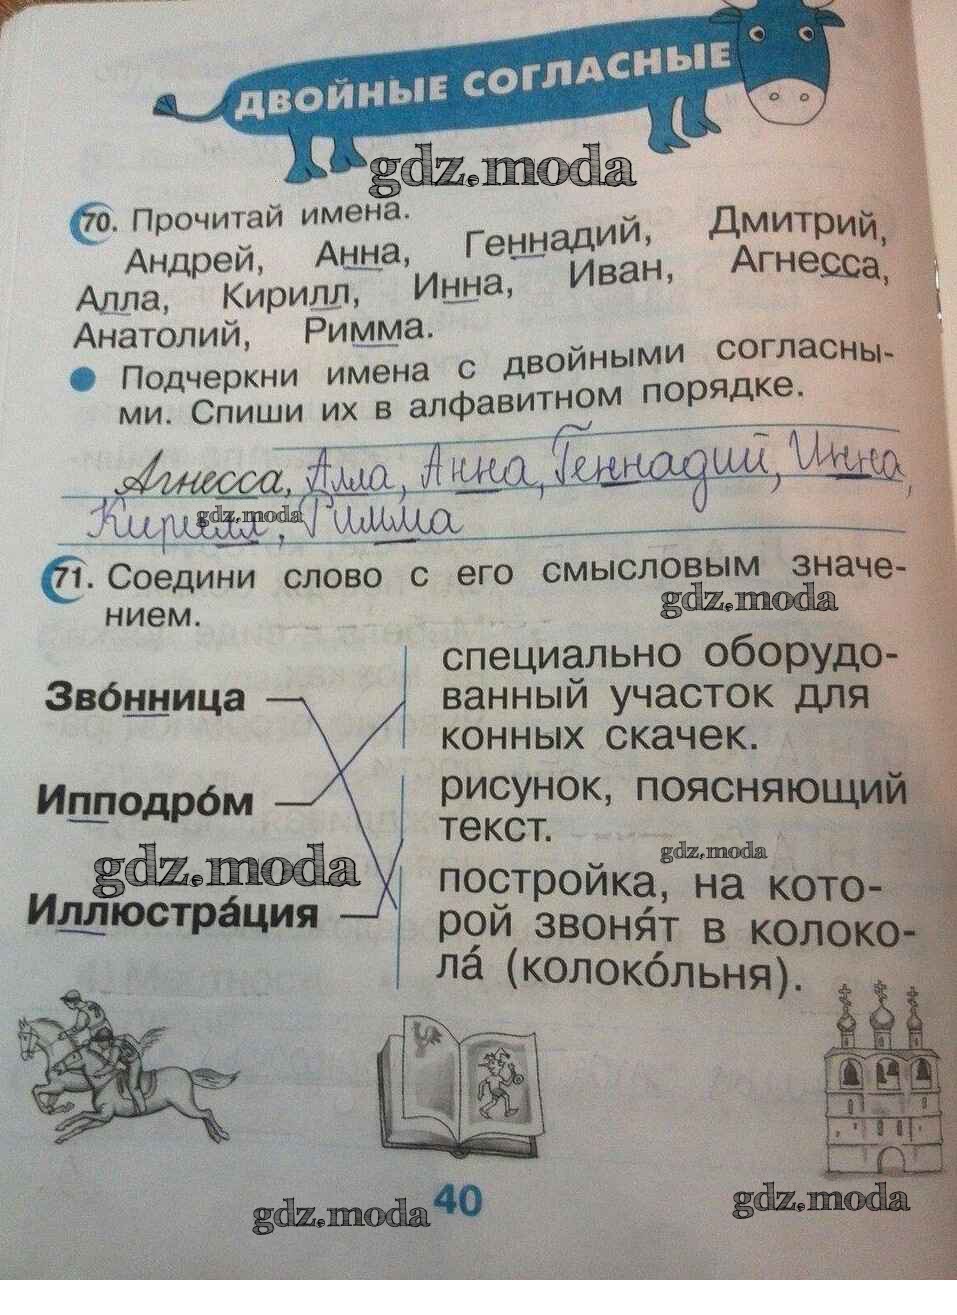 ДВОЙНЫЕ СОГЛАСНЫЕ
gdz.moda
70. Прочитай имена.
Андрей, Анна, Геннадий, Дмитрий,
Алла, Кирилл, Инна, Иван, Агнесса,
Анатолий, Римма.
Подчеркни имена с двойными согласны-
ми. Спиши их в алфавитном порядке.
Агнесса, Алла, Анна, Геннадий, Инна,
Кирилл, Римма
gdz.moda
71. Соедини слово с его смысловым значе-
нием.
gdz.moda
Звóнница
специально оборудо-
ванный участок для
конных скачек.
Ипподрóм
рисунок, поясняющий
текст.
gdz.moda
gdz.moda
Иллюстрáция
постройка, на кото-
рой звоня́т в колоко-
лá (колокóльня).
40
gdz.moda
gdz.moda